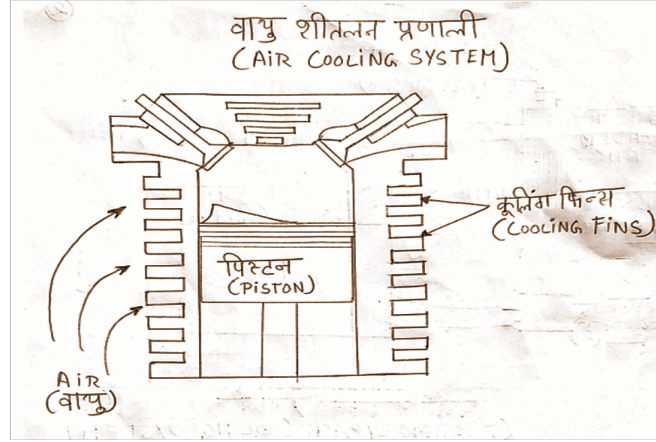 वायु शीतलन प्रणाली
(AIR COOLING SYSTEM)
कूलिंग फिन्स
(COOLING FINS)
पिस्टन
(PISTON)
AIR
(वायु)